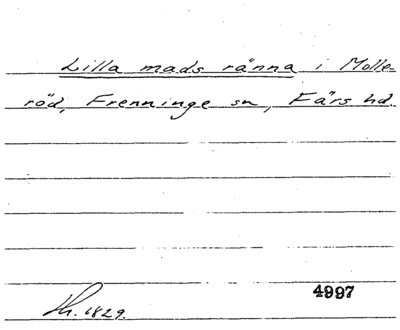 Lilla mads ränna i Molle-
röd, Frenninge sn, Färs hd.
4997
Lh. 1829.